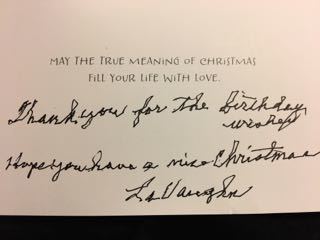 MAY THE TRUE MEANING OF CHRISTMAS
FILL YOUR LIFE WITH LOVE.
Thank you for the Birthday
wishes
Hope you have a nice Christmas
La Vaughn